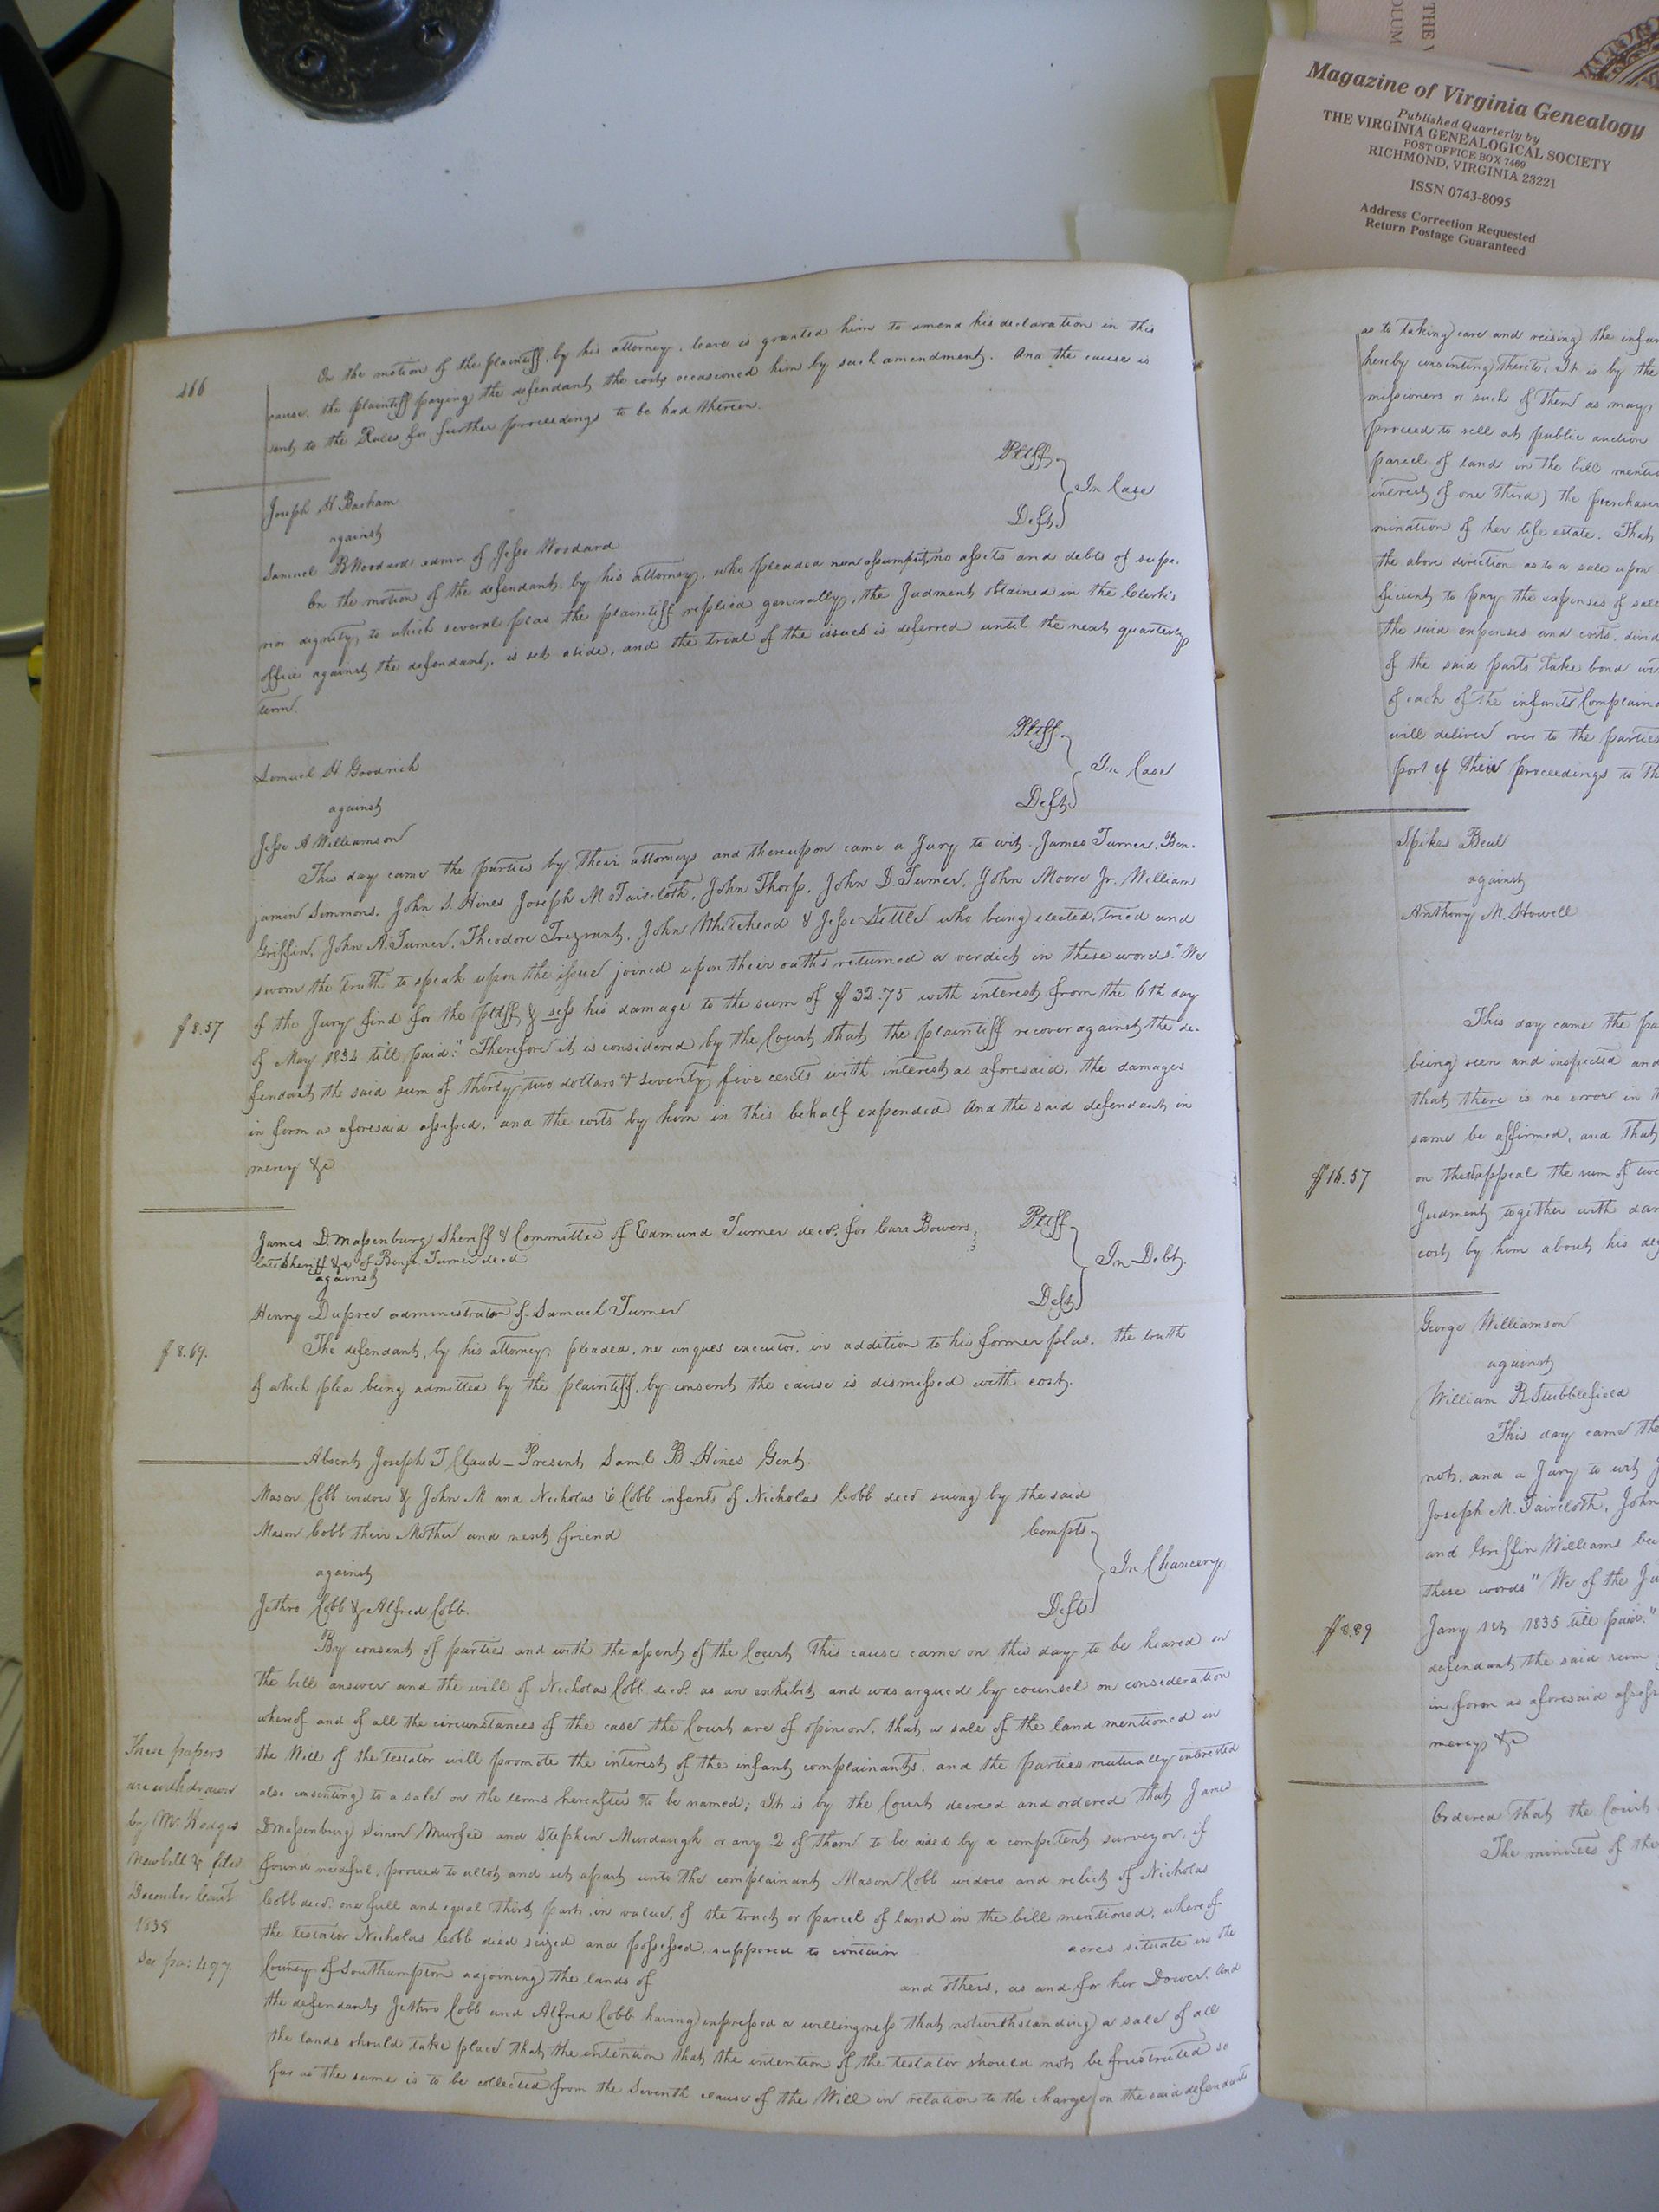 THE V
OLUM
Magazine of Virginia Genealogy
Published Quarterly by
THE VIRGINIA GENEALOGICAL SOCIETY
POST OFFICE BOX 7469
RICHMOND, VIRGINIA 23221
ISSN 0743-8095
Address Correction Requested
Return Postage Guaranteed
466
On the motion of the plaintiff, by his attorney, leave is granted him to amend his declaration in this
cause, the plaintiff paying the defendant the costs occasioned him by such amendment. And the cause is
sent to the Rules for further proceedings to be had therein.
Joseph H Barham Pltff
against In Case
Samuel B Woodard admr. of Jesse Woodard Deft
On the motion of the defendant, by his attorney, who pleaded non assumpsit, no assets and debts of supe-
rior dignity, to which several pleas the plaintiff replied generally, the Judment obtained in the Clerk's
office against the defendant, is set aside, and the trial of the issues is deferred until the next quarterly
term.
Samuel H Goodrich Pltff
against In Case
Jesse A Williamson Deft
This day came the parties by their attorneys and thereupon came a Jury to wit. James Turner, Ben-
jamin Simmons, John S. Hines Joseph M Faircloth, John Thorp, John D. Turner, John Moore Jr. William
Griffin, John A. Turner, Theodore Trezvant, John Whitehead & Jesse Little who being elected, tried and
sworn the truth to speak upon the issue joined upon their oaths returned a verdict in these words. "We
of the Jury find for the pltff & sess his damage to the sum of $32.75 with interest from the 6th day
of May 1834 till paid." Therefore it is considered by the Court that the plaintiff recover against the de-
fendant the said sum of thirty two dollars & seventy five cents with interest as aforesaid, the damages
in form as aforesaid assessed, and the costs by him in this behalf expended And the said defendant in
mercy &c
$8.57
James D. Massenburg Sheriff & Committee of Edmund Turner decd. for Carr Bowers Pltff
late Sheriff &c of Benja. Turner decd
against In Debt
Henry Dupree administrator of Samuel Turner Deft
The defendant, by his attorney, pleaded, ne unques executor, in addition to his former plea, the truth
of which plea being admitted by the plaintiff, by consent the cause is dismissed with cost.
$8.69.
Absent Joseph T Claud – Present Saml B Hines Gent.
Mason Cobb widow & John M and Nicholas Cobb infants of Nicholas Cobb decd suing by the said
Mason Cobb their Mother and next friend Compts
against In Chancery
Jethro Cobb & Alfred Cobb. Defts
By consent of parties and with the assent of the Court This cause came on this day to be heared on
the bill answer and the will of Nicholas Cobb decd. as an exhibit and was argued by counsel on consideration
whereof and of all the circumstances of the case the Court are of opinion, that a sale of the land mentioned in
the Will of the testator will promote the interest of the infant complainants, and the parties mutually interested
also consenting to a sale on the terms hereafter to be named; It is by the Court decreed and ordered that James
D Massenburg Simon Murfee and Stephen Murdaugh or any 2 of them to be aided by a competent surveyor, if
found needful, proceed to allot and set apart unto the complainant Mason Cobb widow and relict of Nicholas
Cobb decd. one full and equal third part, in value, of the tract or parcel of land in the bill mentioned, whereof
the testator Nicholas Cobb died seized and possessed, supposed to contain acres situate in the
County of Southampton adjoining the lands of and others, as and for her Dower. And
the defendants Jethro Cobb and Alfred Cobb having expressed a willingness that notwithstanding a sale of all
the lands should take place that the intention that the intention of the testator should not be frustrated so
far as the same is to be collected from the Seventh clause of the Will in relation to the charge on the said defendants
These papers
are withdrawn
by Mr. Hodges
Newbell & filed
December Court
1838
See pa: 497.
as to taking care and reising the infan
hereby consenting thereto, It is by the
missioners or such of them as may
proceed to sell at public auction
parcel of land in the bill mentio
interest of one third) the purchaser
mination of her life estate. That
the above direction as to a sale upon
ficient to pay the expenses of sale
the said expenses and costs, divid
of the said parts take bond wi
of each of the infants Complain
will deliver over to the parties
port of their proceedings to Th
Spikes Beal
against
Anthony M. Howell
This day came the pa
being seen and inspected and
that there is no error in t
same be affirmed, and that
on this appeal the sum of
Judment together with dam
cost by him about his de
$16.57
George Williamson
against
William B Stubblefield
This day came the
not, and a Jury to wit J
Joseph M. Faircloth, John
and Griffin Williams be
these words "We of the Ju
Jany 1st 1835 till paid."
defendant the said sum
in form as aforesaid assess
mercy &c
$8.89
Ordered that the Court
The minutes of the